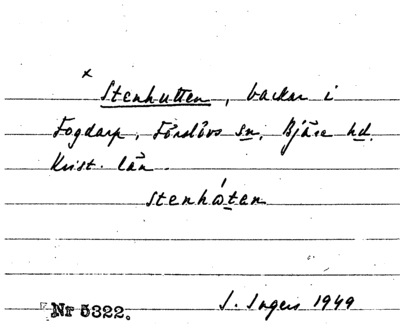 x
Stenhutten, backar i
Fogdarp, Förslövs sn, Bjäre hd.
Krist. län.
stenhωten
Nr 5322. S. Ingers 1949